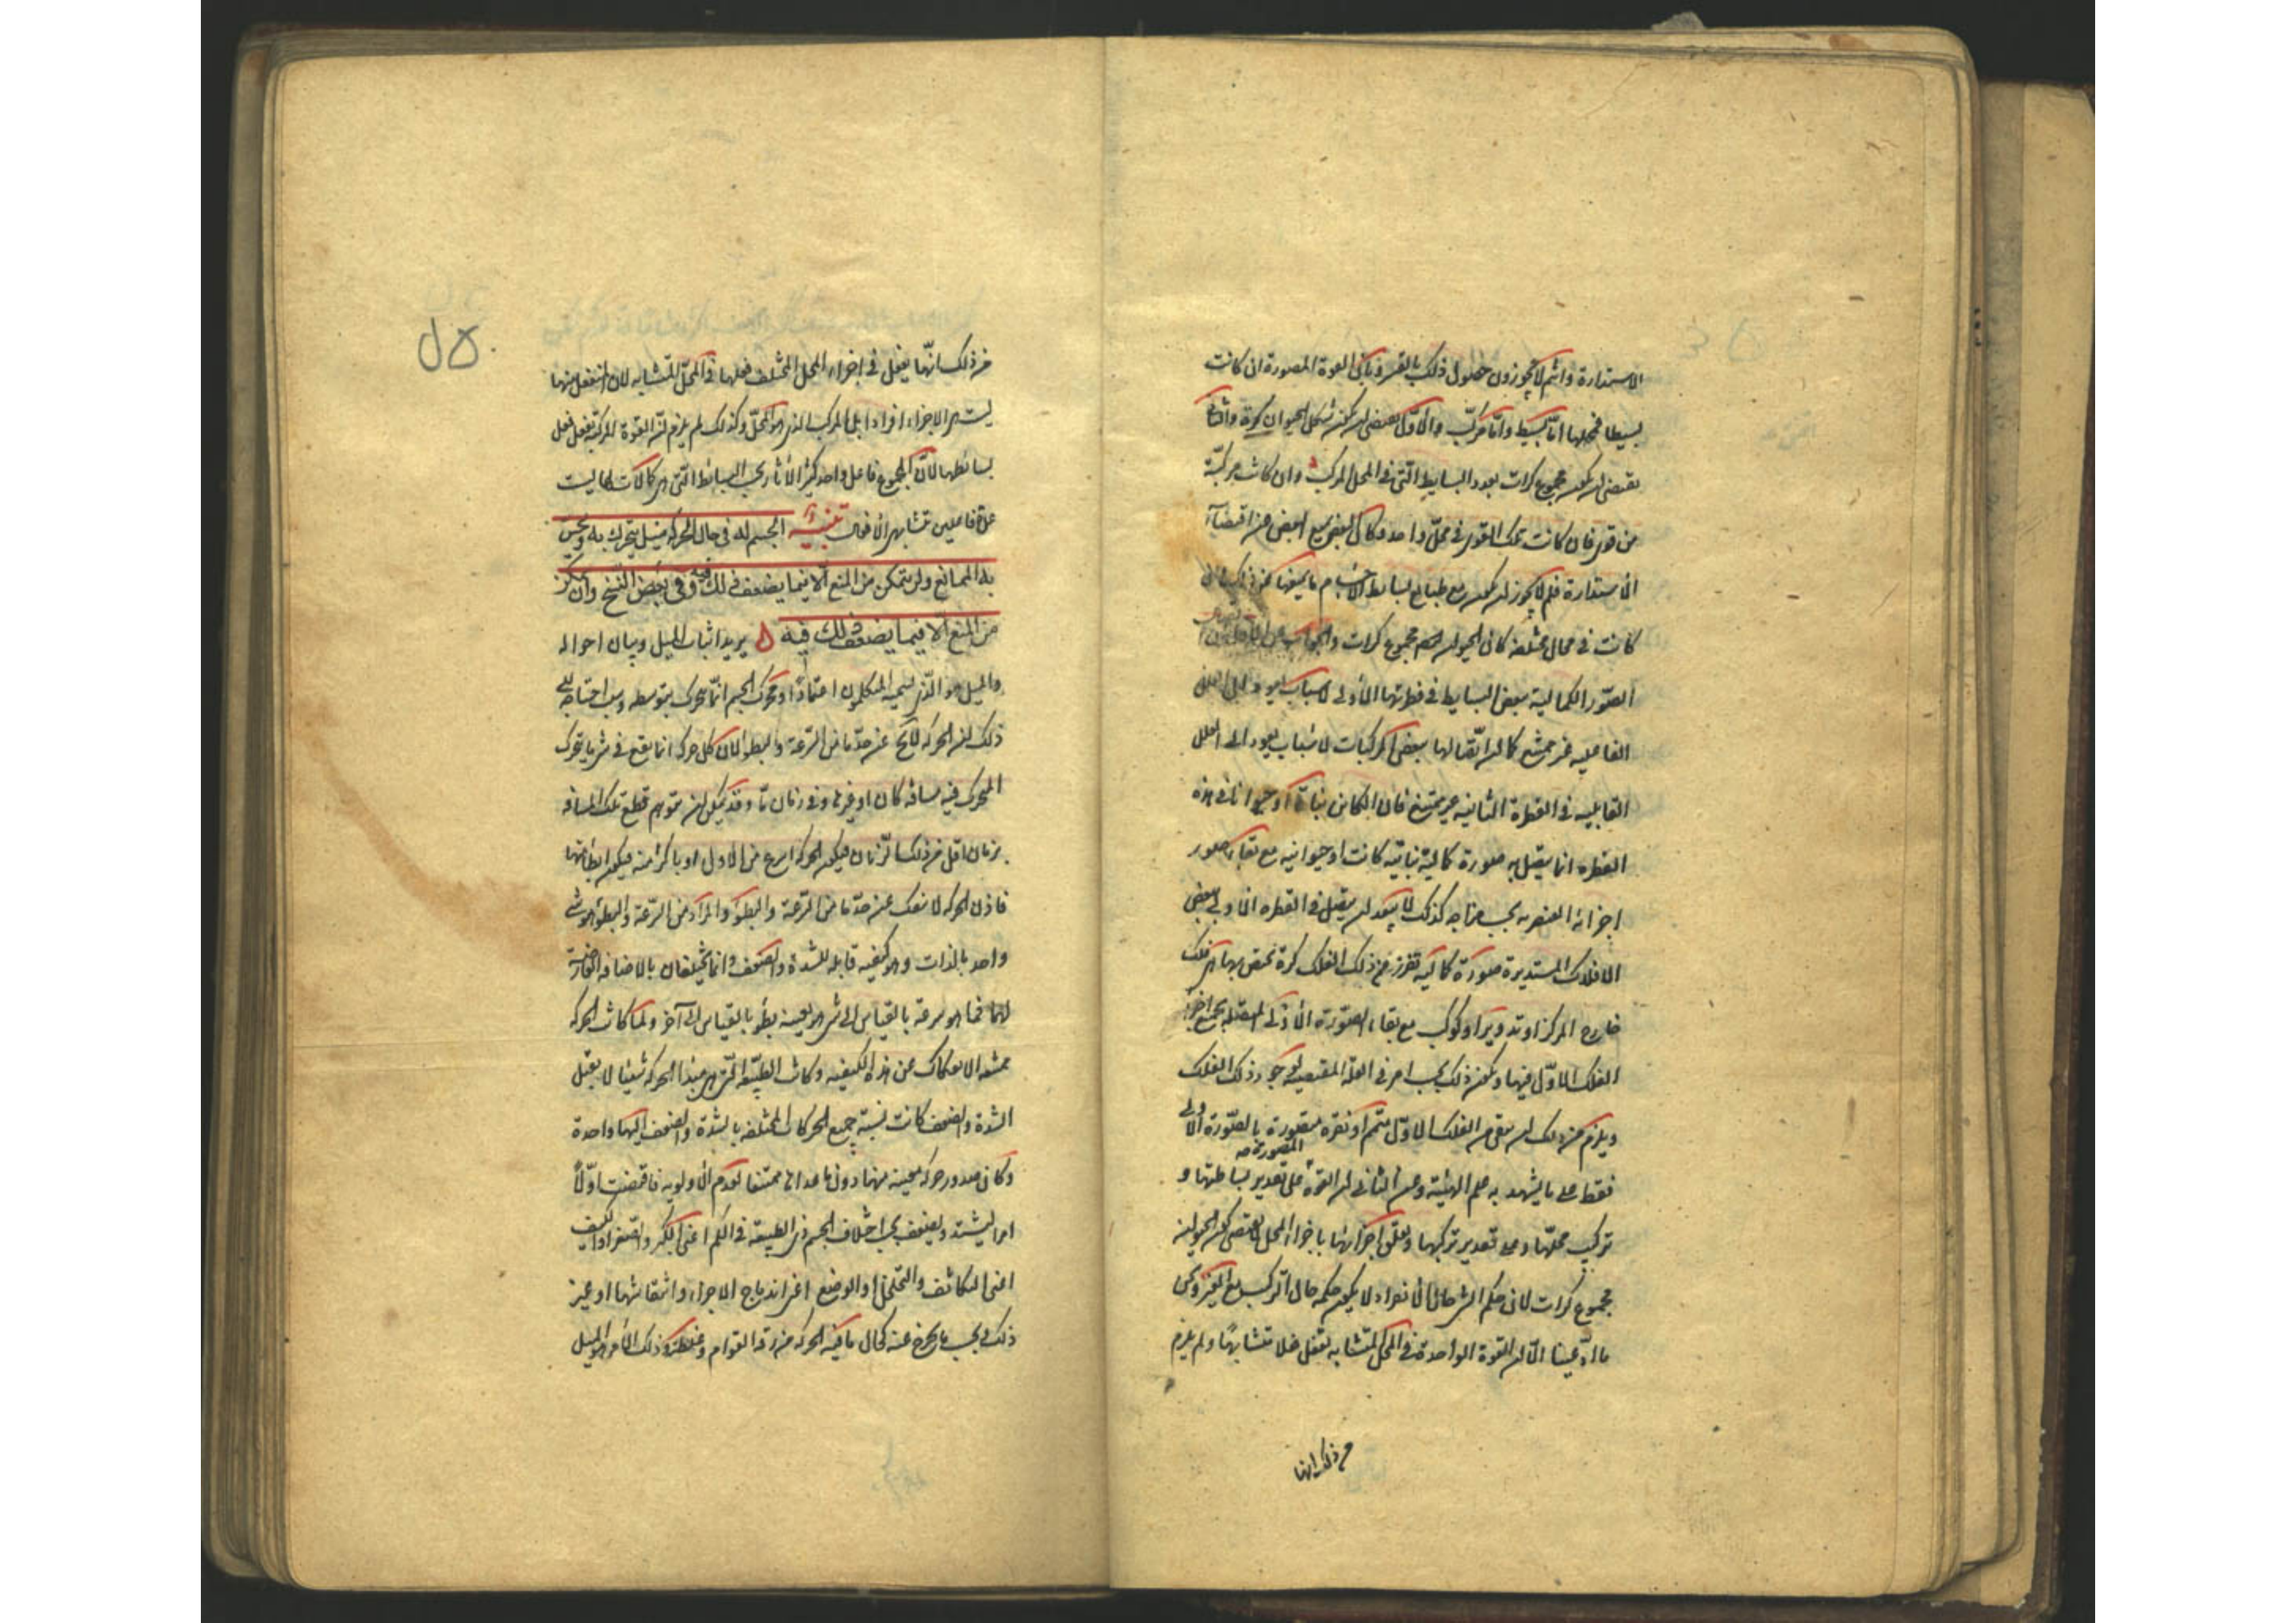 الاستدارة وانتم لا تجوزون حصول ذلك بالقسر وبان القوة المصورة ان كانت
بسيطا فمحلها اما بسيط واما مركب والاول يقتضى ان يكون شكل الحيوان كرة والثانى
يقتضى ان يكون مجموع كرات بعدد البسايط التى فى المحل المركب وان كانت مركبة
من قوى فان كانت تلك القوى فى محل واحد وكان البعض يمنع البعض عن اقتضاء
الاستدارة فلم لا يجوز ان يكون مع طبايع بسايط الاجسام ما يمنعها عن ذلك وان
كانت فى محال مختلفة كان الحيوان مجموع كرات والجواب عن الاول ان
الصور الكمالية ببعض البسايط فى فطرتها الاولى لاسباب يعود الى العلل
الفاعلية غير ممتنع كما ان اتصالها ببعض المركبات لاسباب يعود الى العلل
القابلية فى الفطرة الثانية غير ممتنع فان الكاين نباتا او حيوانا فى هذه
الفطرة انما يقبل به صورة كمالية نباتية كانت او حيوانية مع بقاء صور
اجزائه العنصرية بحسب مزاجه كذلك لا يبعد ان يقبل فى الفطرة الاولى بعض
الافلاك المستديرة صورة كمالية تفرز من ذلك الفلك كرة تختص بها هى فلك
خارج المركز او تدوير او كوكب مع بقاء الصورة الاولى المتصلة بجميع اجزاء
الفلك الاول فيها ويكون ذلك بحسب امر فى العلة المقتضية لوجود ذلك الفلك
ويلزم من ذلك ان يبقى من الفلك الاول متمم او نقرة متصورة بالصورة الاولى
المصورة صح
فقط على ما يشهد به علم الهيئة وعن الثانى ان القوة على تقدير بساطتها و
تركيب محلها وعلى تقدير تركيبها وتعلق اجزائها باجزاء المحل لا يقتضى كون الحيوان
مجموع كرات لان حكم الشىء حال الانفراد لا يكون حكمه حال التركيب مع الغير ونحن
ما ادعينا الا ان القوة الواحدة فى المحل المتشابه تفعل فعلا متشابها ولم يلزم
من ذلك انها
من ذلك انها يفعل فى اجزاء المحل المختلف فعلها فى المحل المتشابه لان المنفعل منها
ليست هى الاجزاء افرادا بل المركب الذى هو المحل وكذلك لم يلزم ان القوة المركبة تفعل فعل
بسائطها لان المجموع فاعل واحد كثير الآثار بحسب البسائط التى هى كالآلات لها ليست
عدة فاعلين متشابهى الافعال تنبيه الجسم له فى حال الحركة ميل يتحرك به ويحس
به الممانع ولن يتمكن من المنع الا فيما يضعف ذلك فيه وفى بعض النسخ وان تمكن
من المنع الا فيما يضعف ذلك فيه يريد اثبات الميل وبيان احواله
والميل هو الذى يسميه المتكلمون اعتمادا ومحرك الجسم انما يحرك بتوسطه وسبب احتياجه الى
ذلك ان الحركة لا يخ عن حد ما من السرعة والبطؤ لان كل حركة انما يقع فى شىء ما يتحرك
المتحرك فيه مسافة كان او غيرها وفى زمان ما وقد يمكن ان يتوهم قطع تلك المسافة
بزمان اقل من ذلك الزمان فيكون الحركة اسرع من الاولى او باكثر منه فيكون ابطأ منها
فاذن الحركة لا ينفك عن حد ما من السرعة والبطؤ والمراد من السرعة والبطؤ هو شىء
واحد بالذات وهو كيفية قابلة للشدة والضعف وانما يختلفان بالاضافة العارضة
لهما فما هو سرعة بالقياس الى شىء هو بعينه بطؤ بالقياس الى آخر ولما كانت الحركة
ممتنعة الانفكاك عن هذه الكيفية وكانت الطبيعة التى هى مبدأ الحركة شيئا لا يقبل
الشدة والضعف كانت نسبة جميع الحركات المختلفة بالشدة والضعف اليها واحدة
وكان صدور حركة معينة منها دون ما عداها ممتنعا لعدم الاولوية فاقتضت اولا
امرا يشتد ويضعف بحسب اختلاف الجسم ذى الطبيعة فى الكم اعنى الكبر والصغر او الكيف
اعنى التكاثف والتخلخل او الوضع اعنى اندماج الاجزاء وانتفاشها او غير
ذلك وبحسب ما يخرج عنه كحال ما فيه الحركة من رقة القوام وغلظه وذلك الامر هو الميل